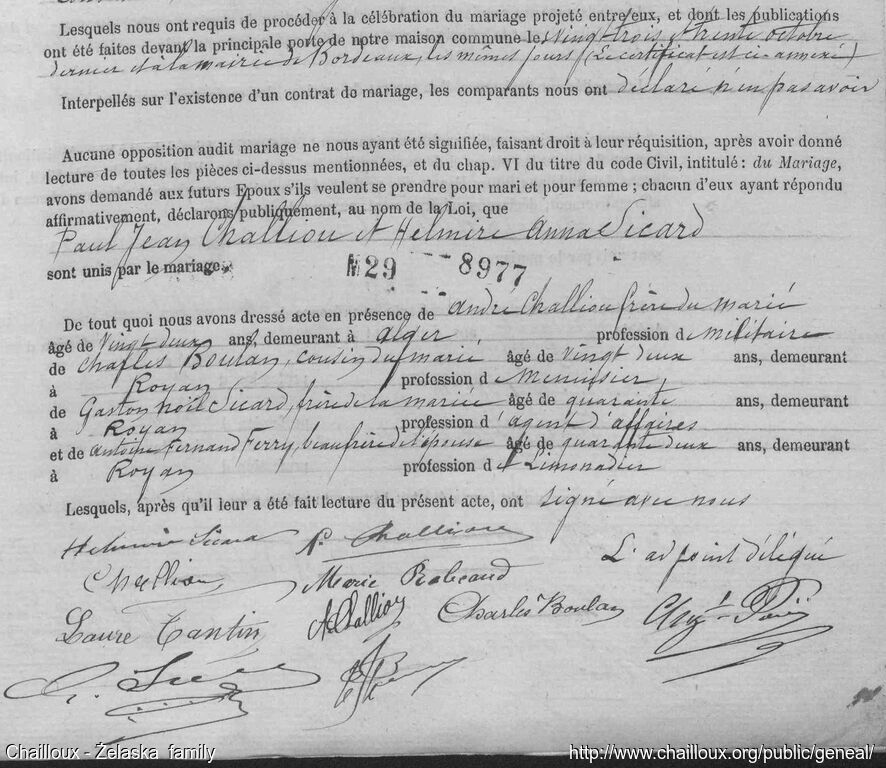 Lesquels nous ont requis de procéder à la célébration du mariage projeté entre eux, et dont les publications
ont été faites devant la principale porte de notre maison commune les vingt trois & trente octobre
dernier et à la mairie de Bordeaux, les mêmes jours (Le certificat est ci-annexé)
Interpellés sur l'existence d'un contrat de mariage, les comparants nous ont déclaré n'en pas avoir
Aucune opposition audit mariage ne nous ayant été signifiée, faisant droit à leur réquisition, après avoir donné
lecture de toutes les pièces ci-dessus mentionnées, et du chap. VI du titre du code Civil, intitulé : du Mariage,
avons demandé aux futurs Epoux s'ils veulent se prendre pour mari et pour femme ; chacun d'eux ayant répondu
affirmativement, déclarons publiquement, au nom de la Loi, que
Paul Jean Challiou et Helmire Anna Sicard
sont unis par le mariage.
N29 8977
De tout quoi nous avons dressé acte en présence de André Challiou frère du marié
âgé de vingt deux ans, demeurant à alger profession de militaire
de Charles Boulan, cousin du marié âgé de vingt deux ans, demeurant
à Royan profession d menuisier
de Gaston Noël Sicard, frère de la mariée âgé de quarante ans, demeurant
à Royan profession d'agent d'affaires
et de Antoine Fernand Ferry, beau frère de l'épouse âgé de quarante deux ans, demeurant
à Royan profession de Limonadier
Lesquels, après qu'il leur a été fait lecture du présent acte, ont signé avec nous
Helmire Sicard P. Challiou
L'adjoint délégué
Challiou Marie Rabeaud
Laure Tantin A Challiou Charles Boulan
G. Sicard
Chailloux - Żelaska family http://www.chailloux.org/public/geneal/